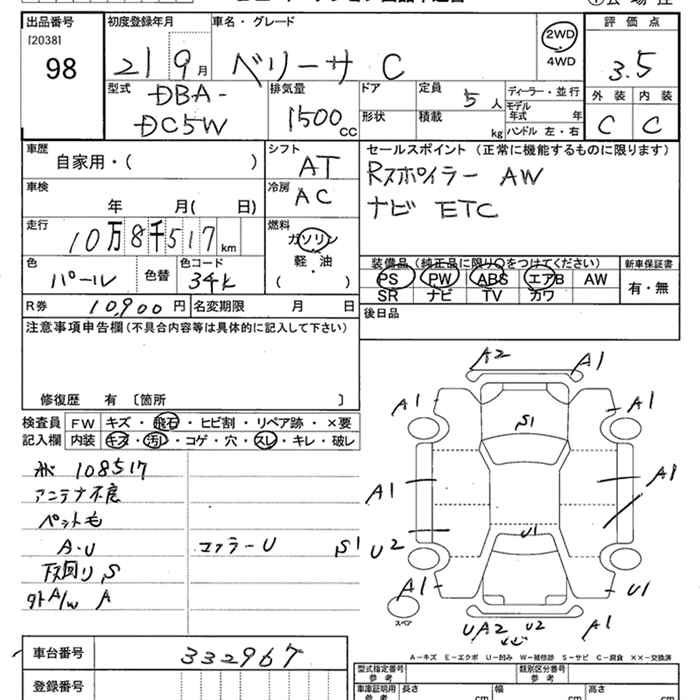 出品番号 初度登録年月 車名・グレード 2WD 評価点
[2038] 98 21 9月 ベリーサ C 4WD 3.5
型式 排気量 ドア 定員 5人 ディーラー・並行 外装 内装
DBA-DC5W 1500cc 形状 積載 kg モデル年式 年 ハンドル 左・右 C C
車歴 自家用・( ) シフト AT セールスポイント (正常に機能するものに限ります)
車検 年 月( 日) 冷房 AC Rスポイラー AW
ナビ ETC
走行 10万8千517km 燃料 ガソリン 軽・油 ( )
色 パール 色替 色コード 34K
装備品 (純正品に限り○をつけてください) 新車保証書
PS PW ABS エアB AW 有・無
SR ナビ TV カワ
R券 10,900円 名変期限 月 日 後日品
注意事項申告欄 (不具合内容等は具体的に記入して下さい)
修復歴 有 〔箇所 〕
検査員 FW キズ・飛石・ヒビ割・リペア跡・×要
記入欄 内装 キズ・汚れ・コゲ・穴・スレ・キレ・破レ
108517
アンテナ不良
ペット毛
A・U S1
下回り S
外A/W A
A2 A1
A1 A1
S1
A1 A1
U2 U1
A1 U1
スペア
UA2 U2 A1
A-キズ E-エクボ U-凹み W-補修跡 S-サビ C-腐食 XX-交換済
車台番号 332967
登録番号
型式指定番号 参考 類別区分番号 参考
車庫証明用 参考 長さ cm 幅 cm 高さ cm